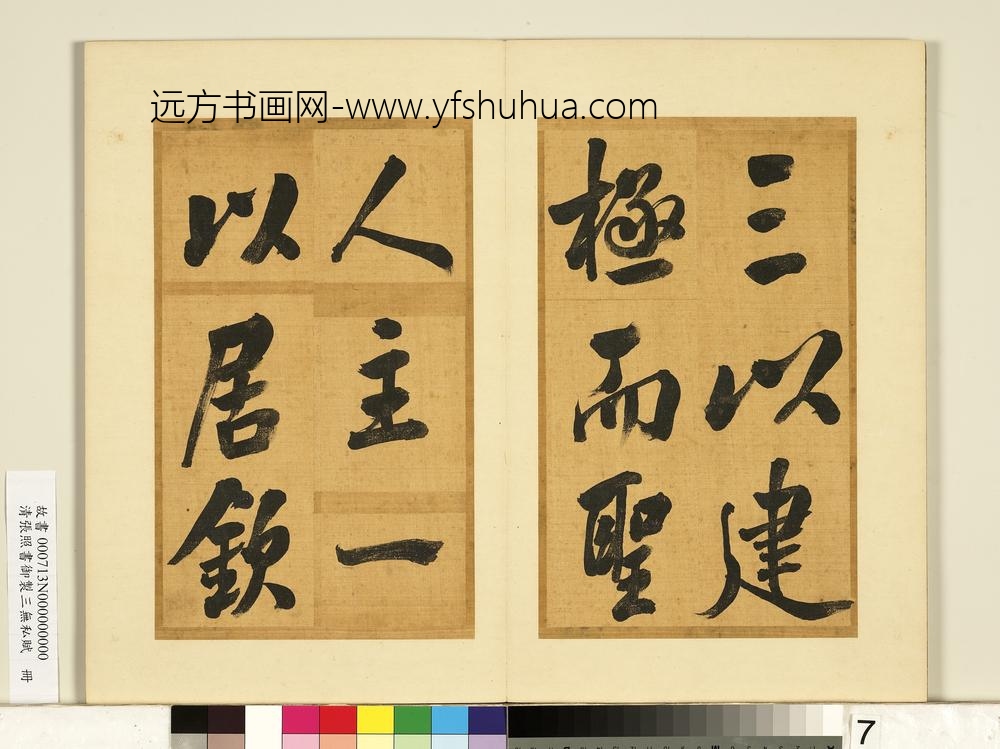 远方书画网-www.yfshuhua.com
三以建
極而聖
人主一
以居欽
故書 000713N000000000
清張照書御製三無私賦 冊
7